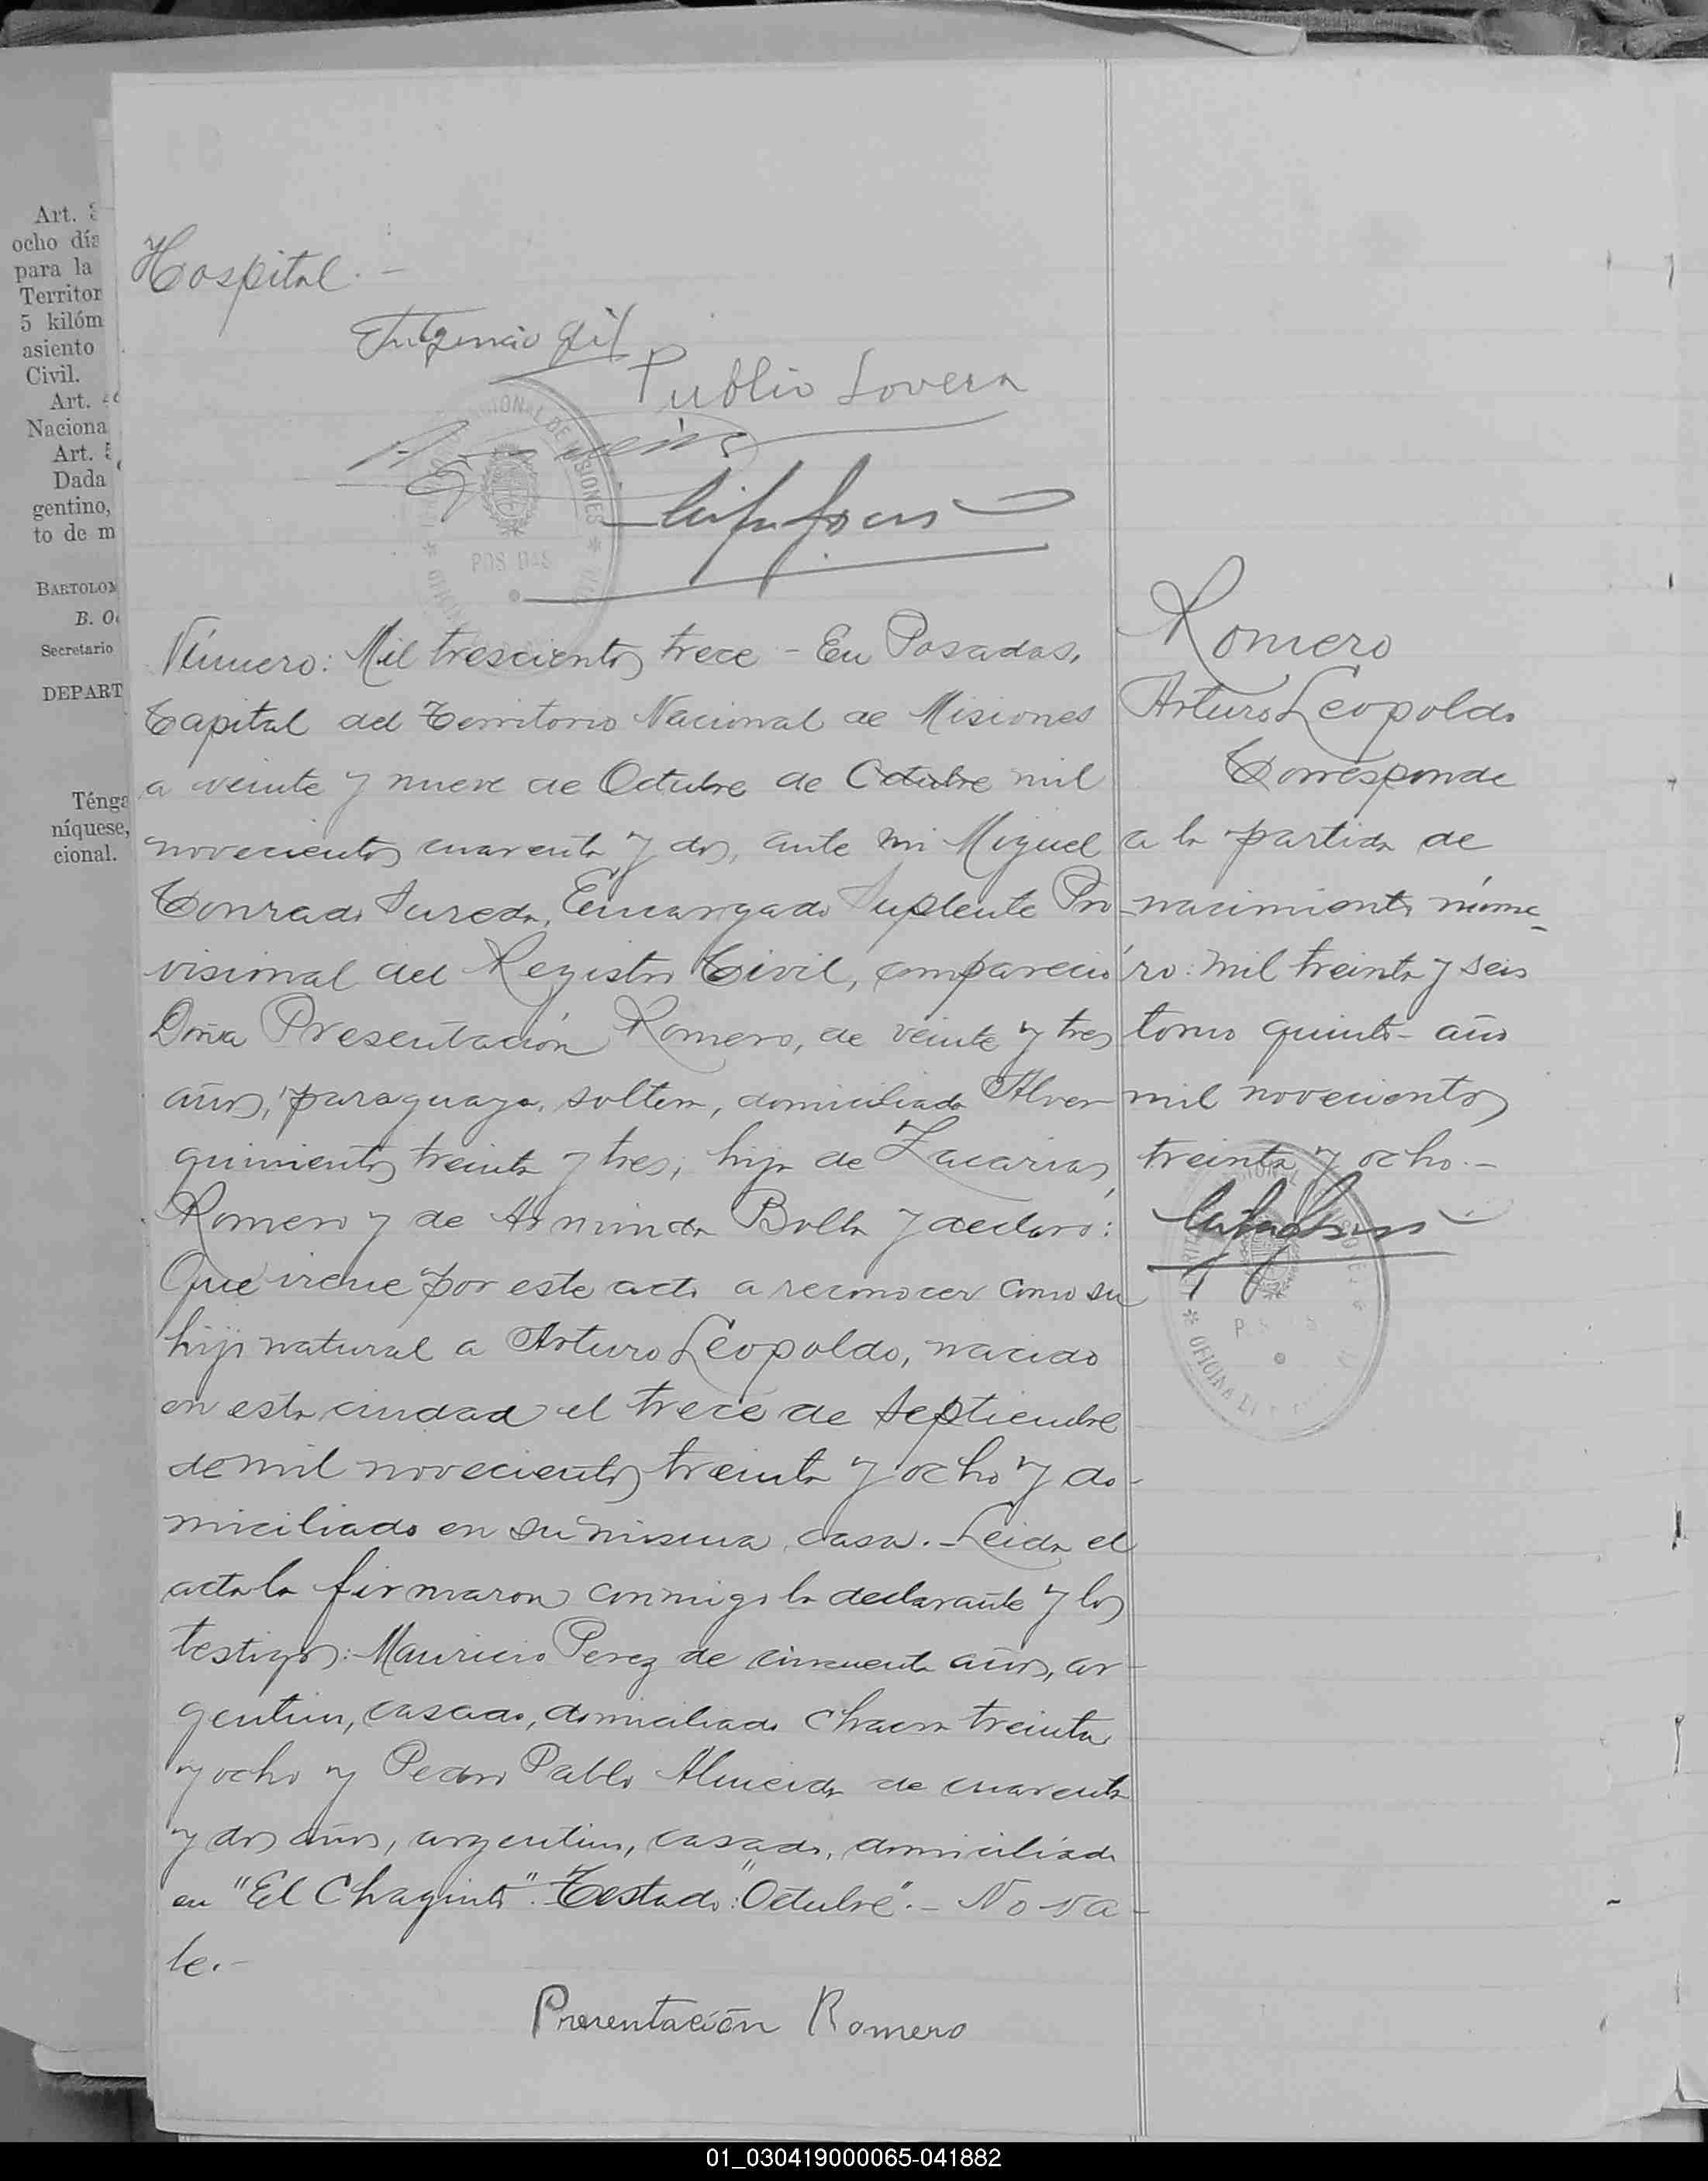 Art.
ocho día
para la
Territor
5 kilóm
asiento
Civil.
Art.
Naciona
Art. 5
Dada
gentino,
to de m
BARTOLOM
B. O
Secretario
DEPART
Ténga
níquese,
cional.
Hospital.-
Fulgencio Gil
Publio Lovera
NACIONAL DE MISIONES
POSADAS
Número: Mil trescientos trece - En Posadas,
Capital del Territorio Nacional de Misiones
a veinte y nueve de Octubre de Octubre mil
novecientos cuarenta y dos, ante mi Miguel
Conrado Sureda, Encargado Suplente Pro-
visional del Registro Civil, compareció
Doña Presentación Romero, de veinte y tres
años, paraguaya, soltera, domiciliada Alvear
quinientos treinta y tres, hija de Zacarias
Romero y de Arminda Bolla y declaró:
Que viene por este acto a reconocer como su
hijo natural a Arturo Leopoldo, nacido
en esta ciudad el trece de Septiembre
de mil novecientos treinta y ocho y do-
miciliado en su misma casa. - Leida el
acta la firmaron conmigo la declarante y los
testigos: Mauricio Perez de cincuenta años, ar-
gentino, casado, domiciliado chacra treinta
y ocho y Pedro Pablo Almeida de cuarenta
y dos años, argentino, casado, domiciliado
en "El Chaquito". Testado: "Octubre".- No va-
le.-
Presentación Romero
Romero
Arturo Leopoldo
Corresponde
a la partida de
nacimiento núme-
ro: mil treinta y seis
tomo quinto - año
mil novecientos
treinta y ocho.-
OFICINA DE
01_030419000065-041882